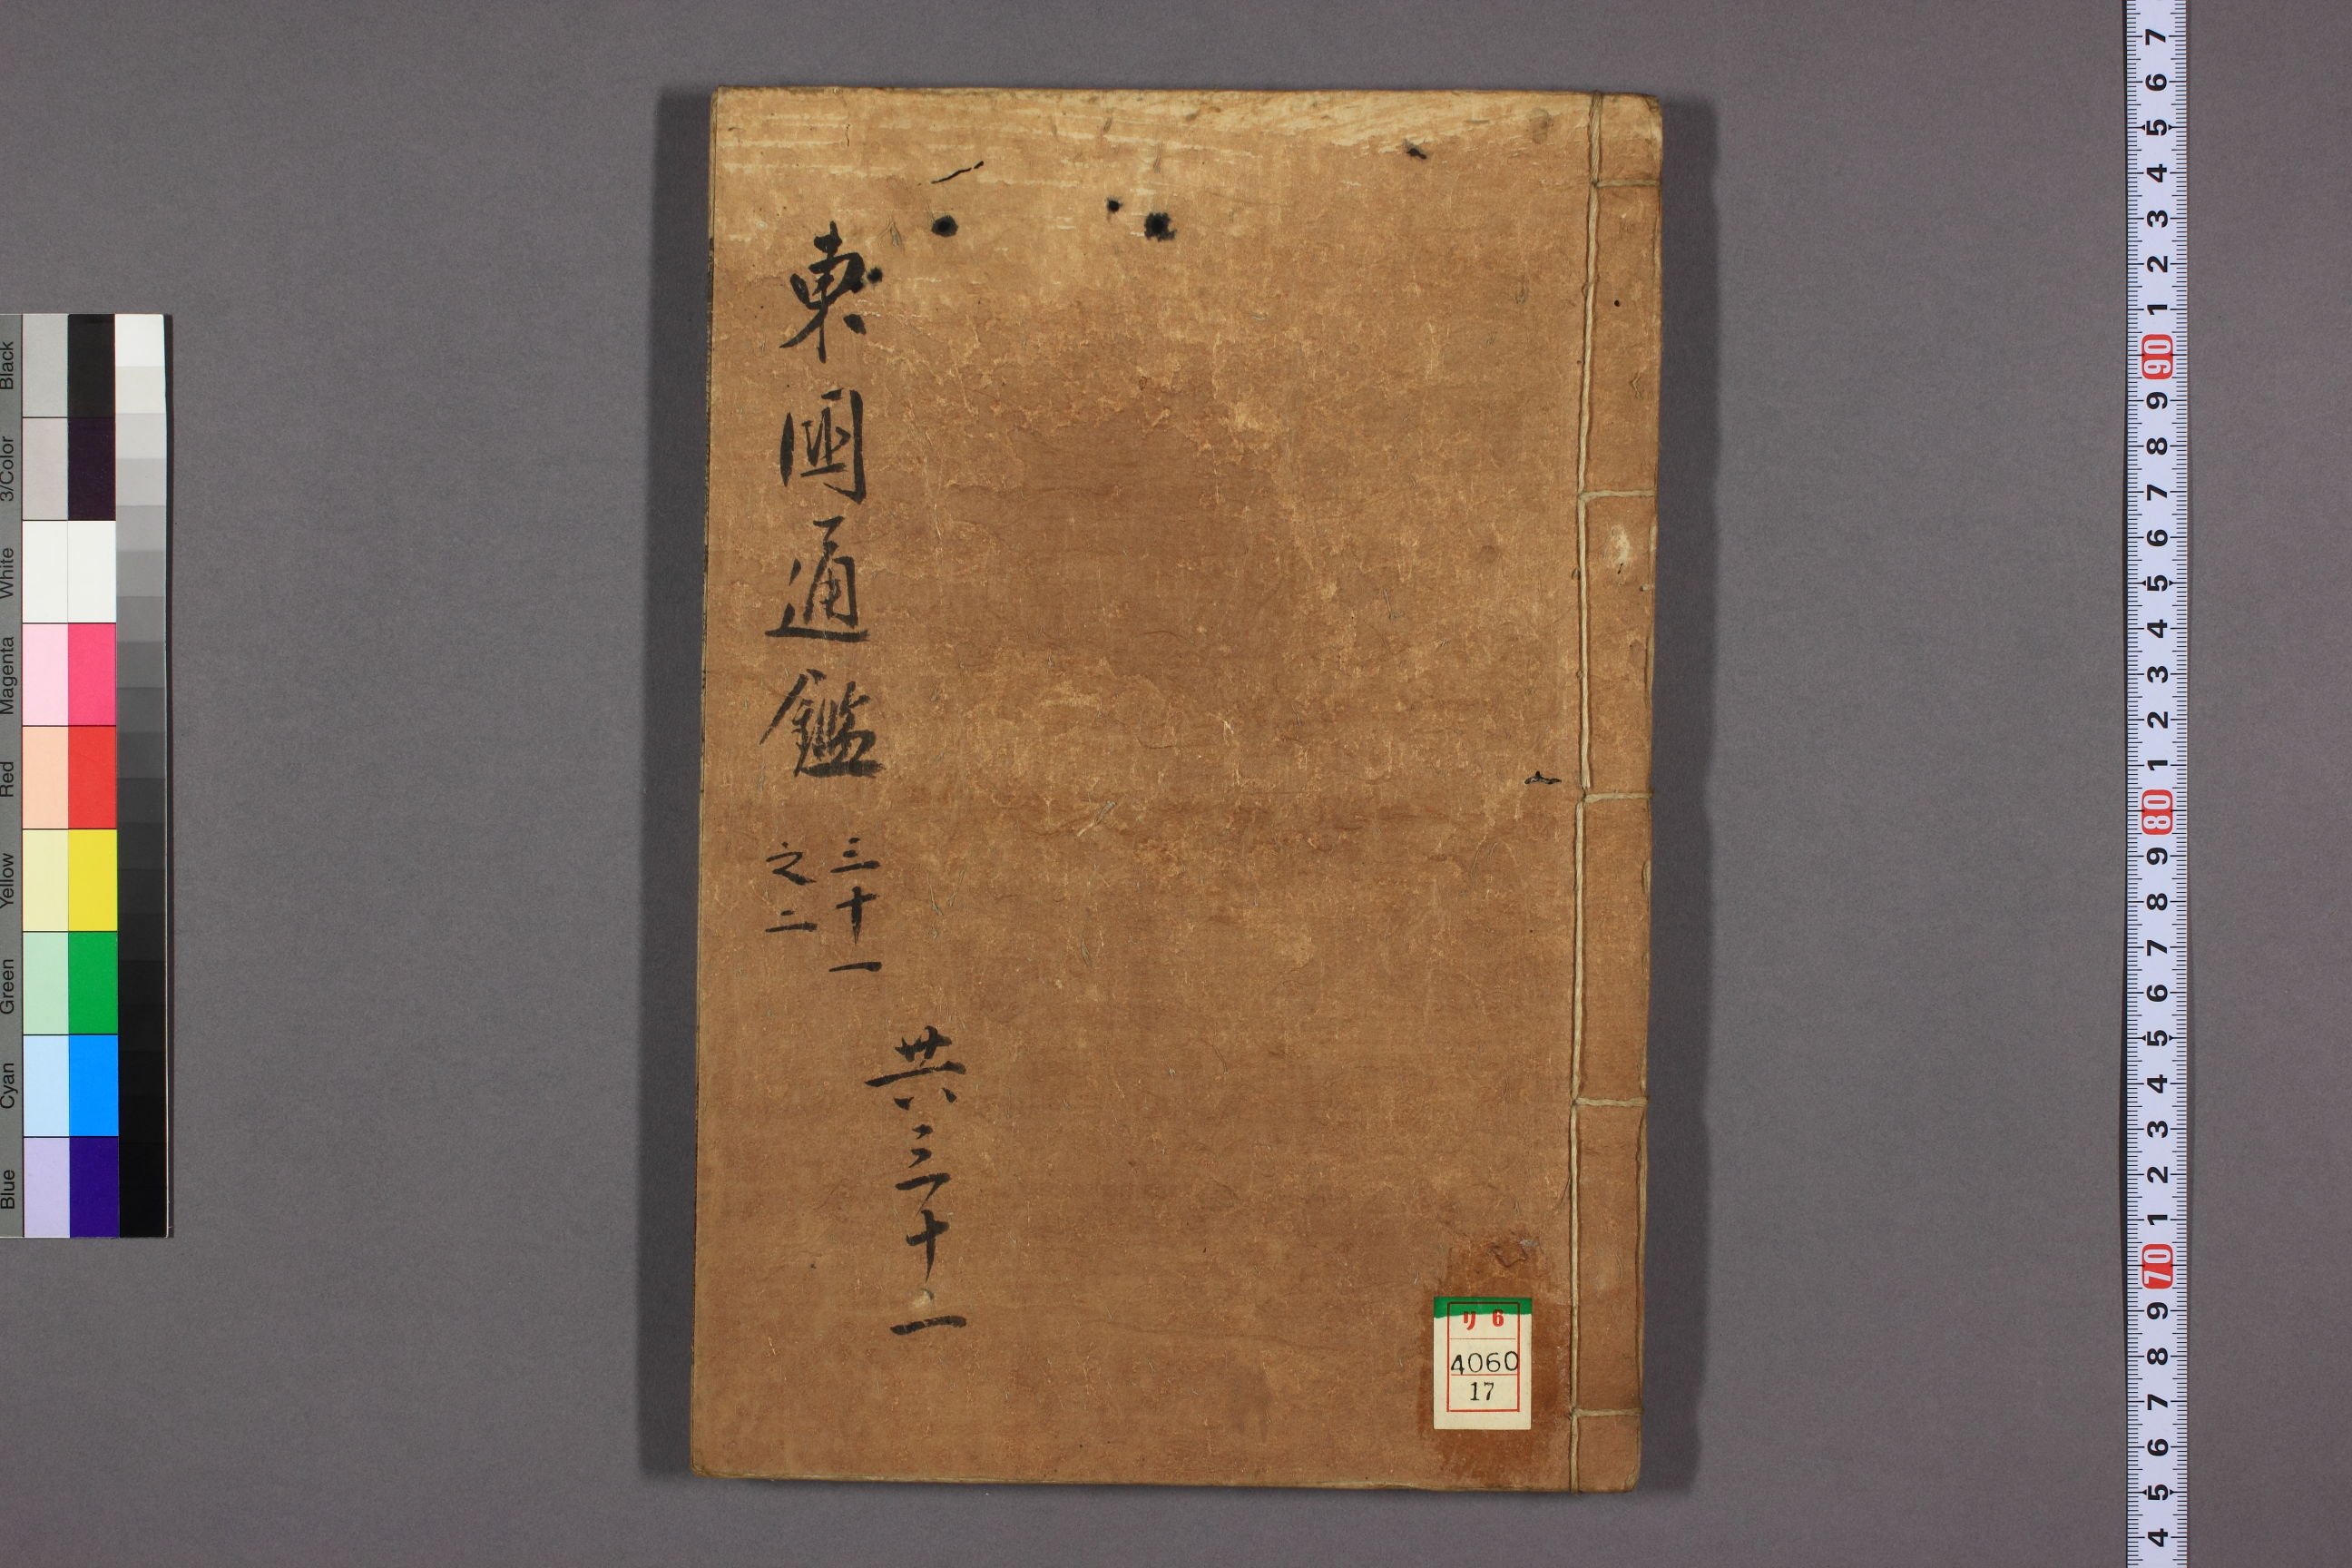 東國通鑑
三十一
之二
共三十二
リ 6
4060
17
Black
3/Color
White
Magenta
Red
Yellow
Green
Cyan
Blue
7 6 5 4 3 2 1 90 9 8 7 6 5 4 3 2 1 80 9 8 7 6 5 4 3 2 1 70 9 8 7 6 5 4